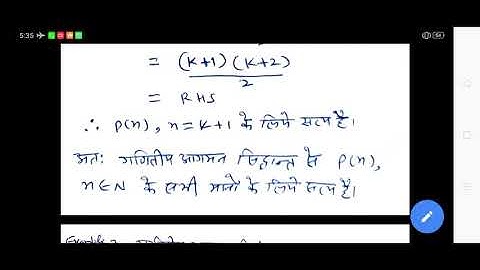 5:35
= (K+1) (K+2)
2
= RHS
∴ P(n), n = K+1 के लिये सत्य है।
अतः गणितीय आगमन सिद्धान्त से P(n),
n∈N के सभी मानों के लिये सत्य है।